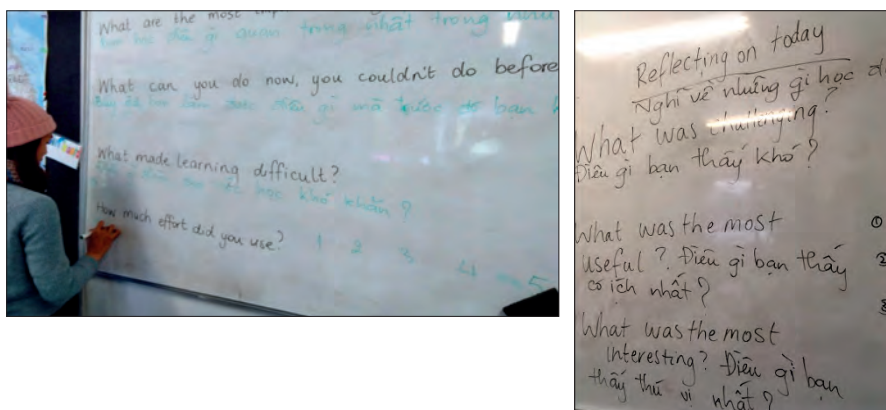 What are the most
quan trọng nhất trong
What can you do now, you couldn't do before
điều gì mà trước đó bạn
What made learning difficult?
học khó khăn?
How much effort did you use? 1 2 3 4 5
Reflecting on today
Nghĩ về những gì học
What was challenging?
Điều gì bạn thấy khó?
What was the most ①
useful? Điều gì bạn thấy
có ích nhất?
What was the most
interesting? Điều gì bạn
thấy thú vị nhất?